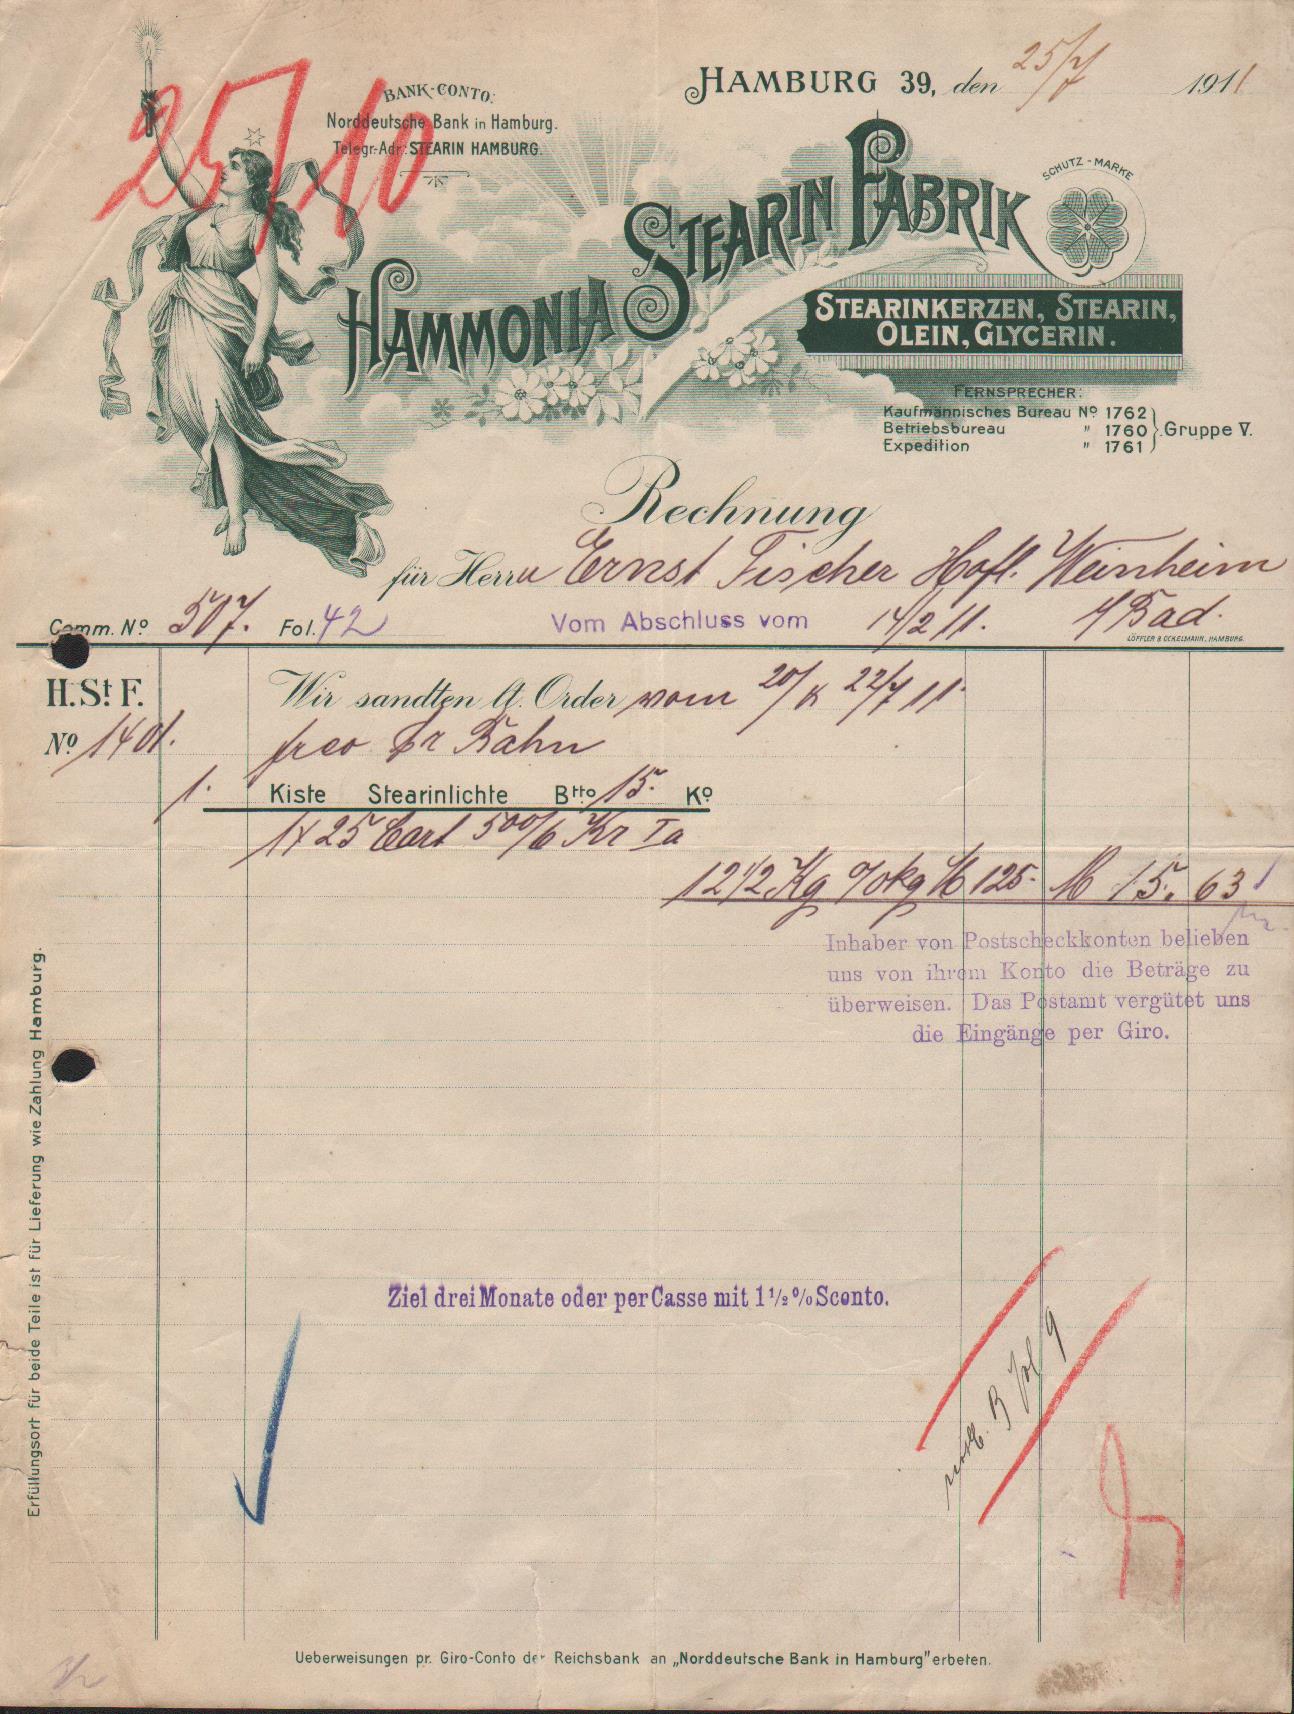 25/10
BANK-CONTO:
Norddeutsche Bank in Hamburg.
Telegr.-Adr.: STEARIN HAMBURG.
HAMBURG 39, den 25/7 1911
SCHUTZ-MARKE
HAMMONIA STEARIN FABRIK
STEARINKERZEN, STEARIN,
OLEIN, GLYCERIN.
FERNSPRECHER:
Kaufmännisches Bureau No 1762
Betriebsbureau " 1760 Gruppe V.
Expedition " 1761
Rechnung
für Herrn Ernst Fischer Hofl. Weinheim
Comm. No 507. Fol. 42 Vom Abschluss vom 14/2 11. / Bad.
LÖFFLER & OCKELMANN, HAMBURG.
H. St. F. Wir sandten lt. Order vom 20/ 22/7 11.
No 1401. frco pr Bahn
1. Kiste Stearinlichte Btto 15. Ko
1 x 25 Cart 500/6 Kr Ia
12 1/2 Kg % kg M 125.- M 15. 63
Inhaber von Postscheckkonten belieben
uns von ihrem Konto die Beträge zu
überweisen. Das Postamt vergütet uns
die Eingänge per Giro.
Erfüllungsort für beide Teile ist für Lieferung wie Zahlung Hamburg.
Ziel drei Monate oder per Casse mit 1 1/2 % Sconto.
B 9
Ueberweisungen pr. Giro-Conto der Reichsbank an „Norddeutsche Bank in Hamburg" erbeten.